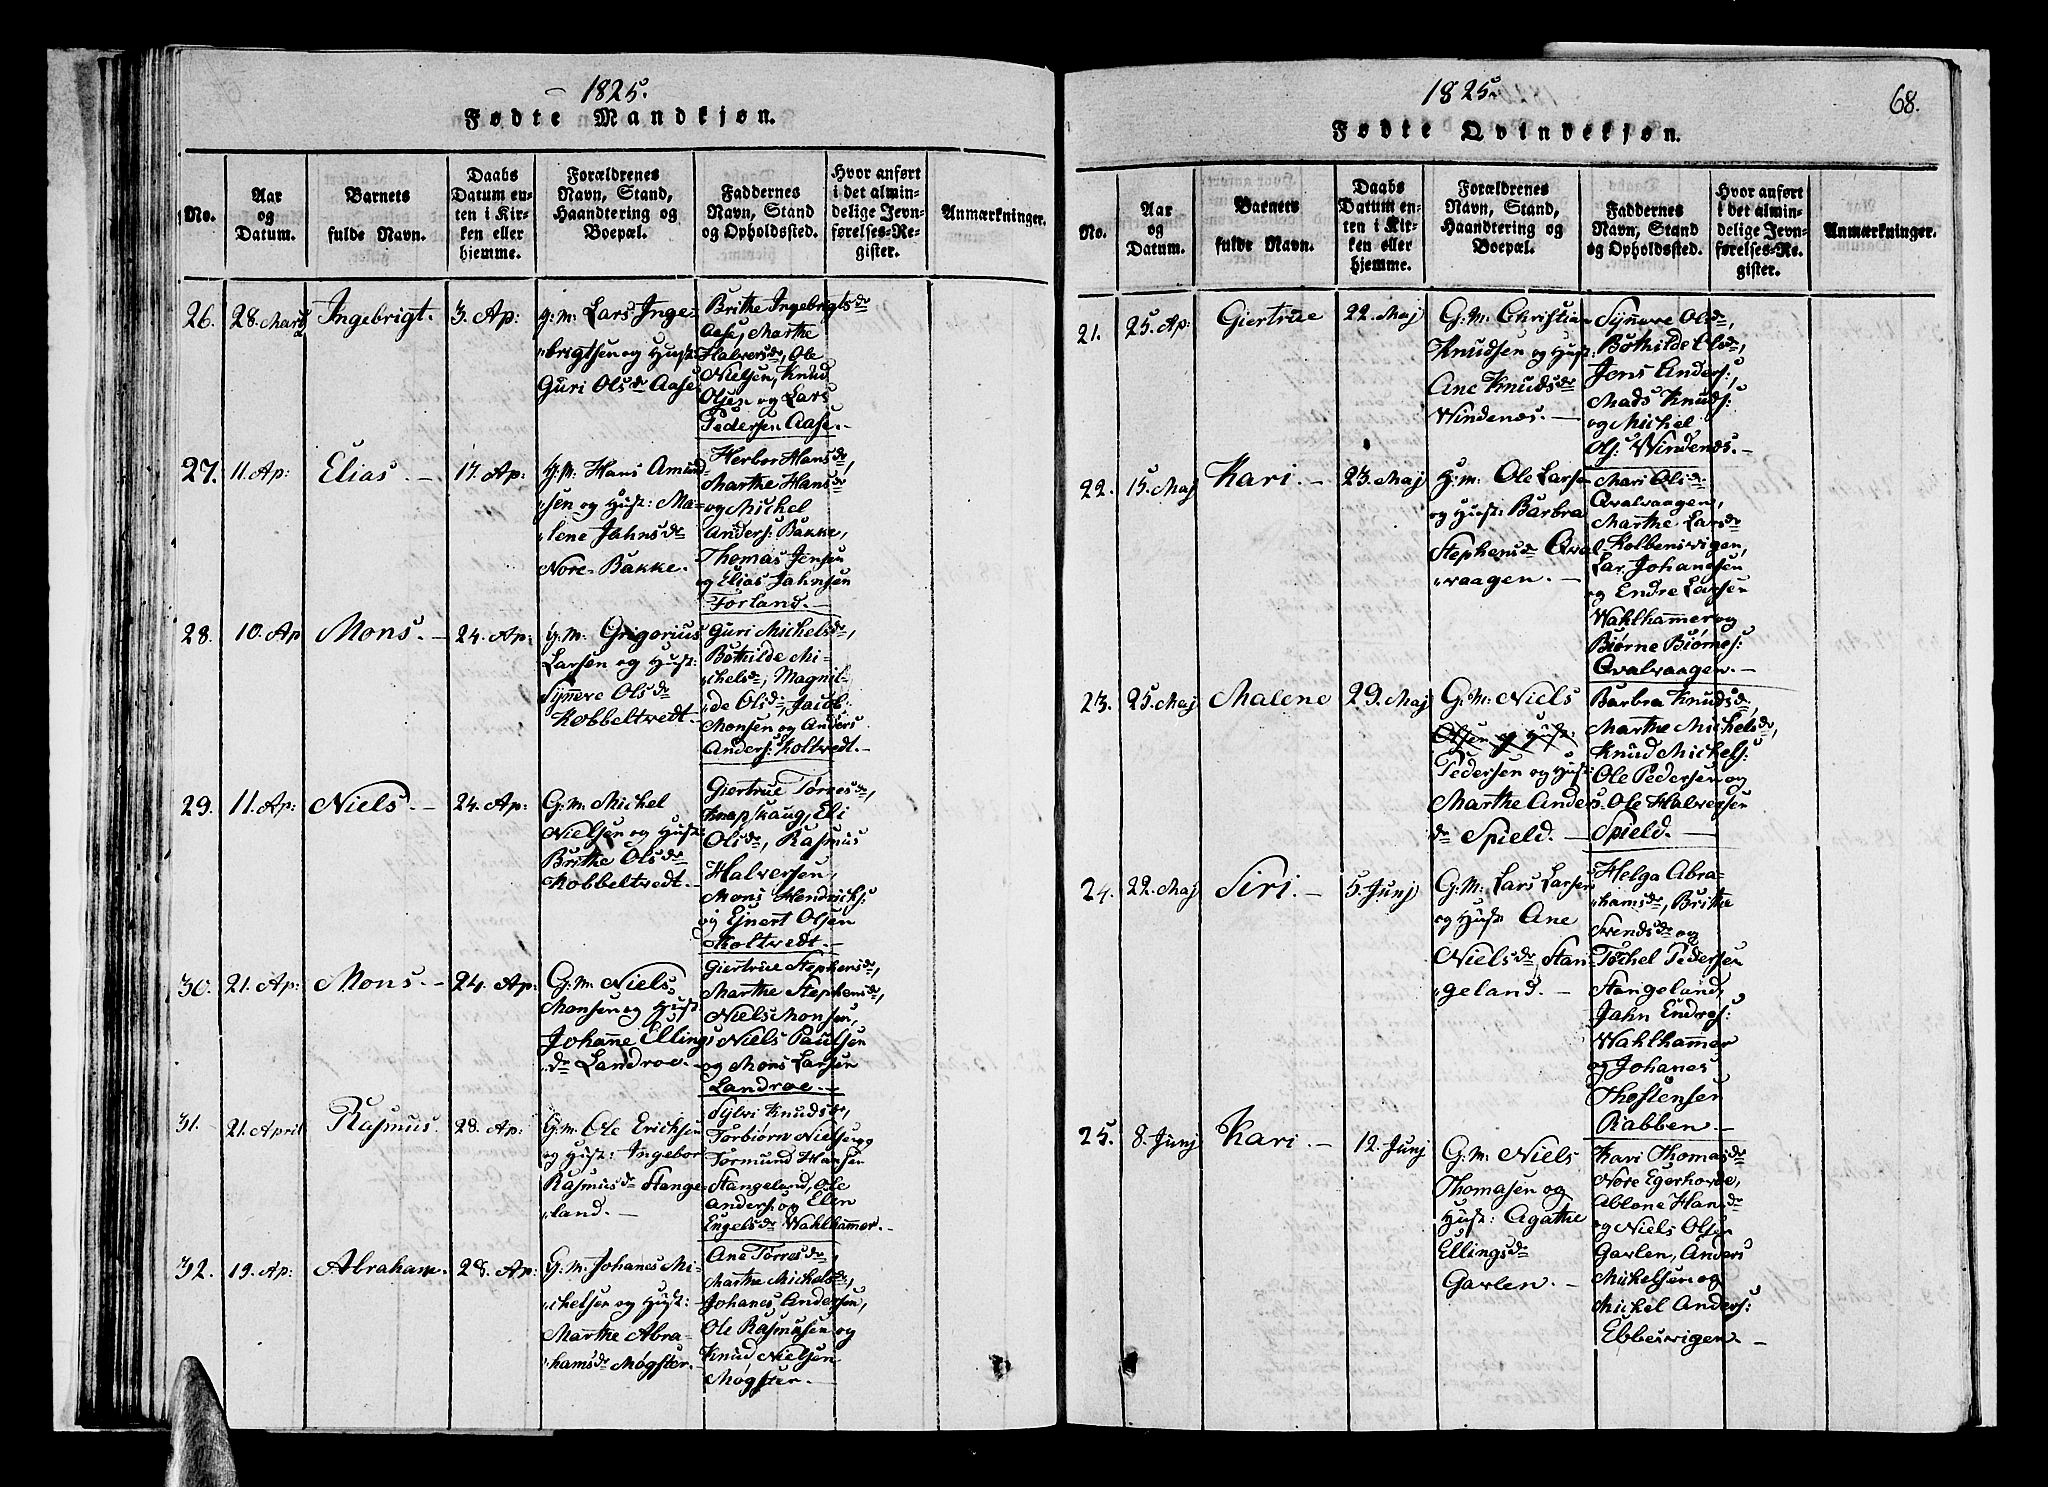 1825.
Fødte Mandkjøn.
No.
Aar
og
Datum.
Barnets
fulde Navn.
Daabs
Datum en-
ten i Kir-
ken eller
hjemme.
Forældrenes
Navn, Stand,
Haandtering og
Boepæl.
Faddernes
Navn, Stand
og Opholdssted.
Hvor anført
i det almin-
delige Jevn-
førelses-Re-
gister.
Anmærkninger.
26.
28. Marts
Ingebrigt.
3. Ap:
G: M: Lars Inge-
"brigtsen og Hust:
Guri Olsdr Aase
Brithe Ingebrigtsdr
Aase, Marthe
Halversdr, Ole
Nielsen, Knud
Olsen og Lars
Pedersen Aase.-
27.
11. Ap:
Elias. -
17. Ap:
G: M: Hans Amund-
"sen og Hust: Ma-
"lene Jahnsdr
Nore-Bakke.
Herbor Hansdr,
Marthe Hansdr
og Michel
Anders: Bakke,
Thomas Jensen
og Elias Jahnsen
Forland.-
28.
10. Ap
Mons. -
24. Ap:
G: M: Grigorius
Larsen og Hust:
Synneve Olsdr
Kobbeltvedt.-
Guri Michelsdr,
Bothilde Mi-
"chelsdr, Magnil-
"de Olsdr, Jacob
Monsen og Anders
Anders: Koltvedt.-
29.
11. Ap:
Niels. -
24. Ap:
G: M: Michel
Nielsen og Hust:
Brithe Olsdr
Kobbeltvedt.-
Giertrue Torresdr,
Knapskaug, Eli
Olsdr, Rasmus
Halversen,
Mons Hendricks:
og Ejnert Olsen
Koltvedt.-
30.
21. Ap:
Mons. -
24. Ap:
G: M: Niels
Monsen og Hust:
Johanne Ellings
dr Landroe.-
Giertrue Stephensdr,
Marthe Stephensdr,
Niels Monsen,
Niels Paulsen
og Mons Larsen
Landroe.-
31.
21. April
Rasmus.
28. Ap:
G: M: Ole Ericksen
og Hust: Ingebor
Rasmusdr Stange-
"land. -
Sylvi Knudsdr,
Torbiørn Nielsen og
Tormund Hansen
Stangeland, Ole
Anders: og Elen
Engelsdr Wahlhammer.-
32.
19. Ap:
Abraham.
28. Ap:
G: M: Johanes Mi-
"chelsen og Hust:
Marthe Abra-
"hamsdr Møgster.-
Ane Torresdr,
Marthe Michelsdr,
Johanes Andersen,
Ole Rasmusen og
Knud Nielsen
Møgster.-
1825.
68.
Fødte Qvindekjøn.
No.
Aar
og
Datum.
Barnets
fulde Navn.
Daabs
Datum en-
ten i Kir-
ken eller
hjemme.
Forældrenes
Navn, Stand,
Haandtering og
Boepæl.
Faddernes
Navn, Stand
og Opholdssted.
Hvor anført
i det almin-
delige Jevn-
førelses-Re-
gister.
Anmærkninger.
21.
25. Ap:
Giertrue
22. Maj
G: M: Christian
Knudsen og Hust:
Ane Knudsdr
Windenes. -
Synneve Olsdr,
Bothilde Olsdr,
Jens Anders:,
Mads Knuds:
og Michel
Ols: Windenes.-
22.
15. Maj
Kari. -
23. Maj
G: M: Ole Larsen
og Hust: Barbra
Stephensdr Qval-
"vaagen. -
Mari Olsdr
Qvalvaagen,
Marthe Larsdr
Kolbensvigen,
Lar. Johannsen
og Endre Larsen
Wahlhammer og
Biørne Biørnes:
Qvalvaagen.-
23.
25. Maj
Malene
29. Maj
G: M: Niels
Olsen og Hust:
Pedersen og Hust:
Marthe Anders
dr Spield. -
Barbra Knudsdr,
Marthe Michelsdr,
Knud Michels:
Ole Pedersen og
Ole Halvorsen
Spield. -
24.
22. Maj
Siri. -
5. Junj
G: M: Lars Larsen
og Hust: Ane
Nielsdr, Stan-
"geland. -
Helga Abra-
"hamsdr, Brithe
Svendsdr og
Tochel Pedersen
Stangeland,
Jahn Endres:
Wahlhammer
og Johanes
Thostensen
Rabben.-
25.
8. Junj
Kari. -
12. Junj
G: M: Niels
Thomasen og
Hust: Agathe
Ellingsdr
Garlen. -
Kari Thomasdr
Nore Egerhovde,
Ablone Hansdr
og Niels Olsen
Garlen, Anders
Michelsen og
Michel Anders:
Ebbesvigen. -